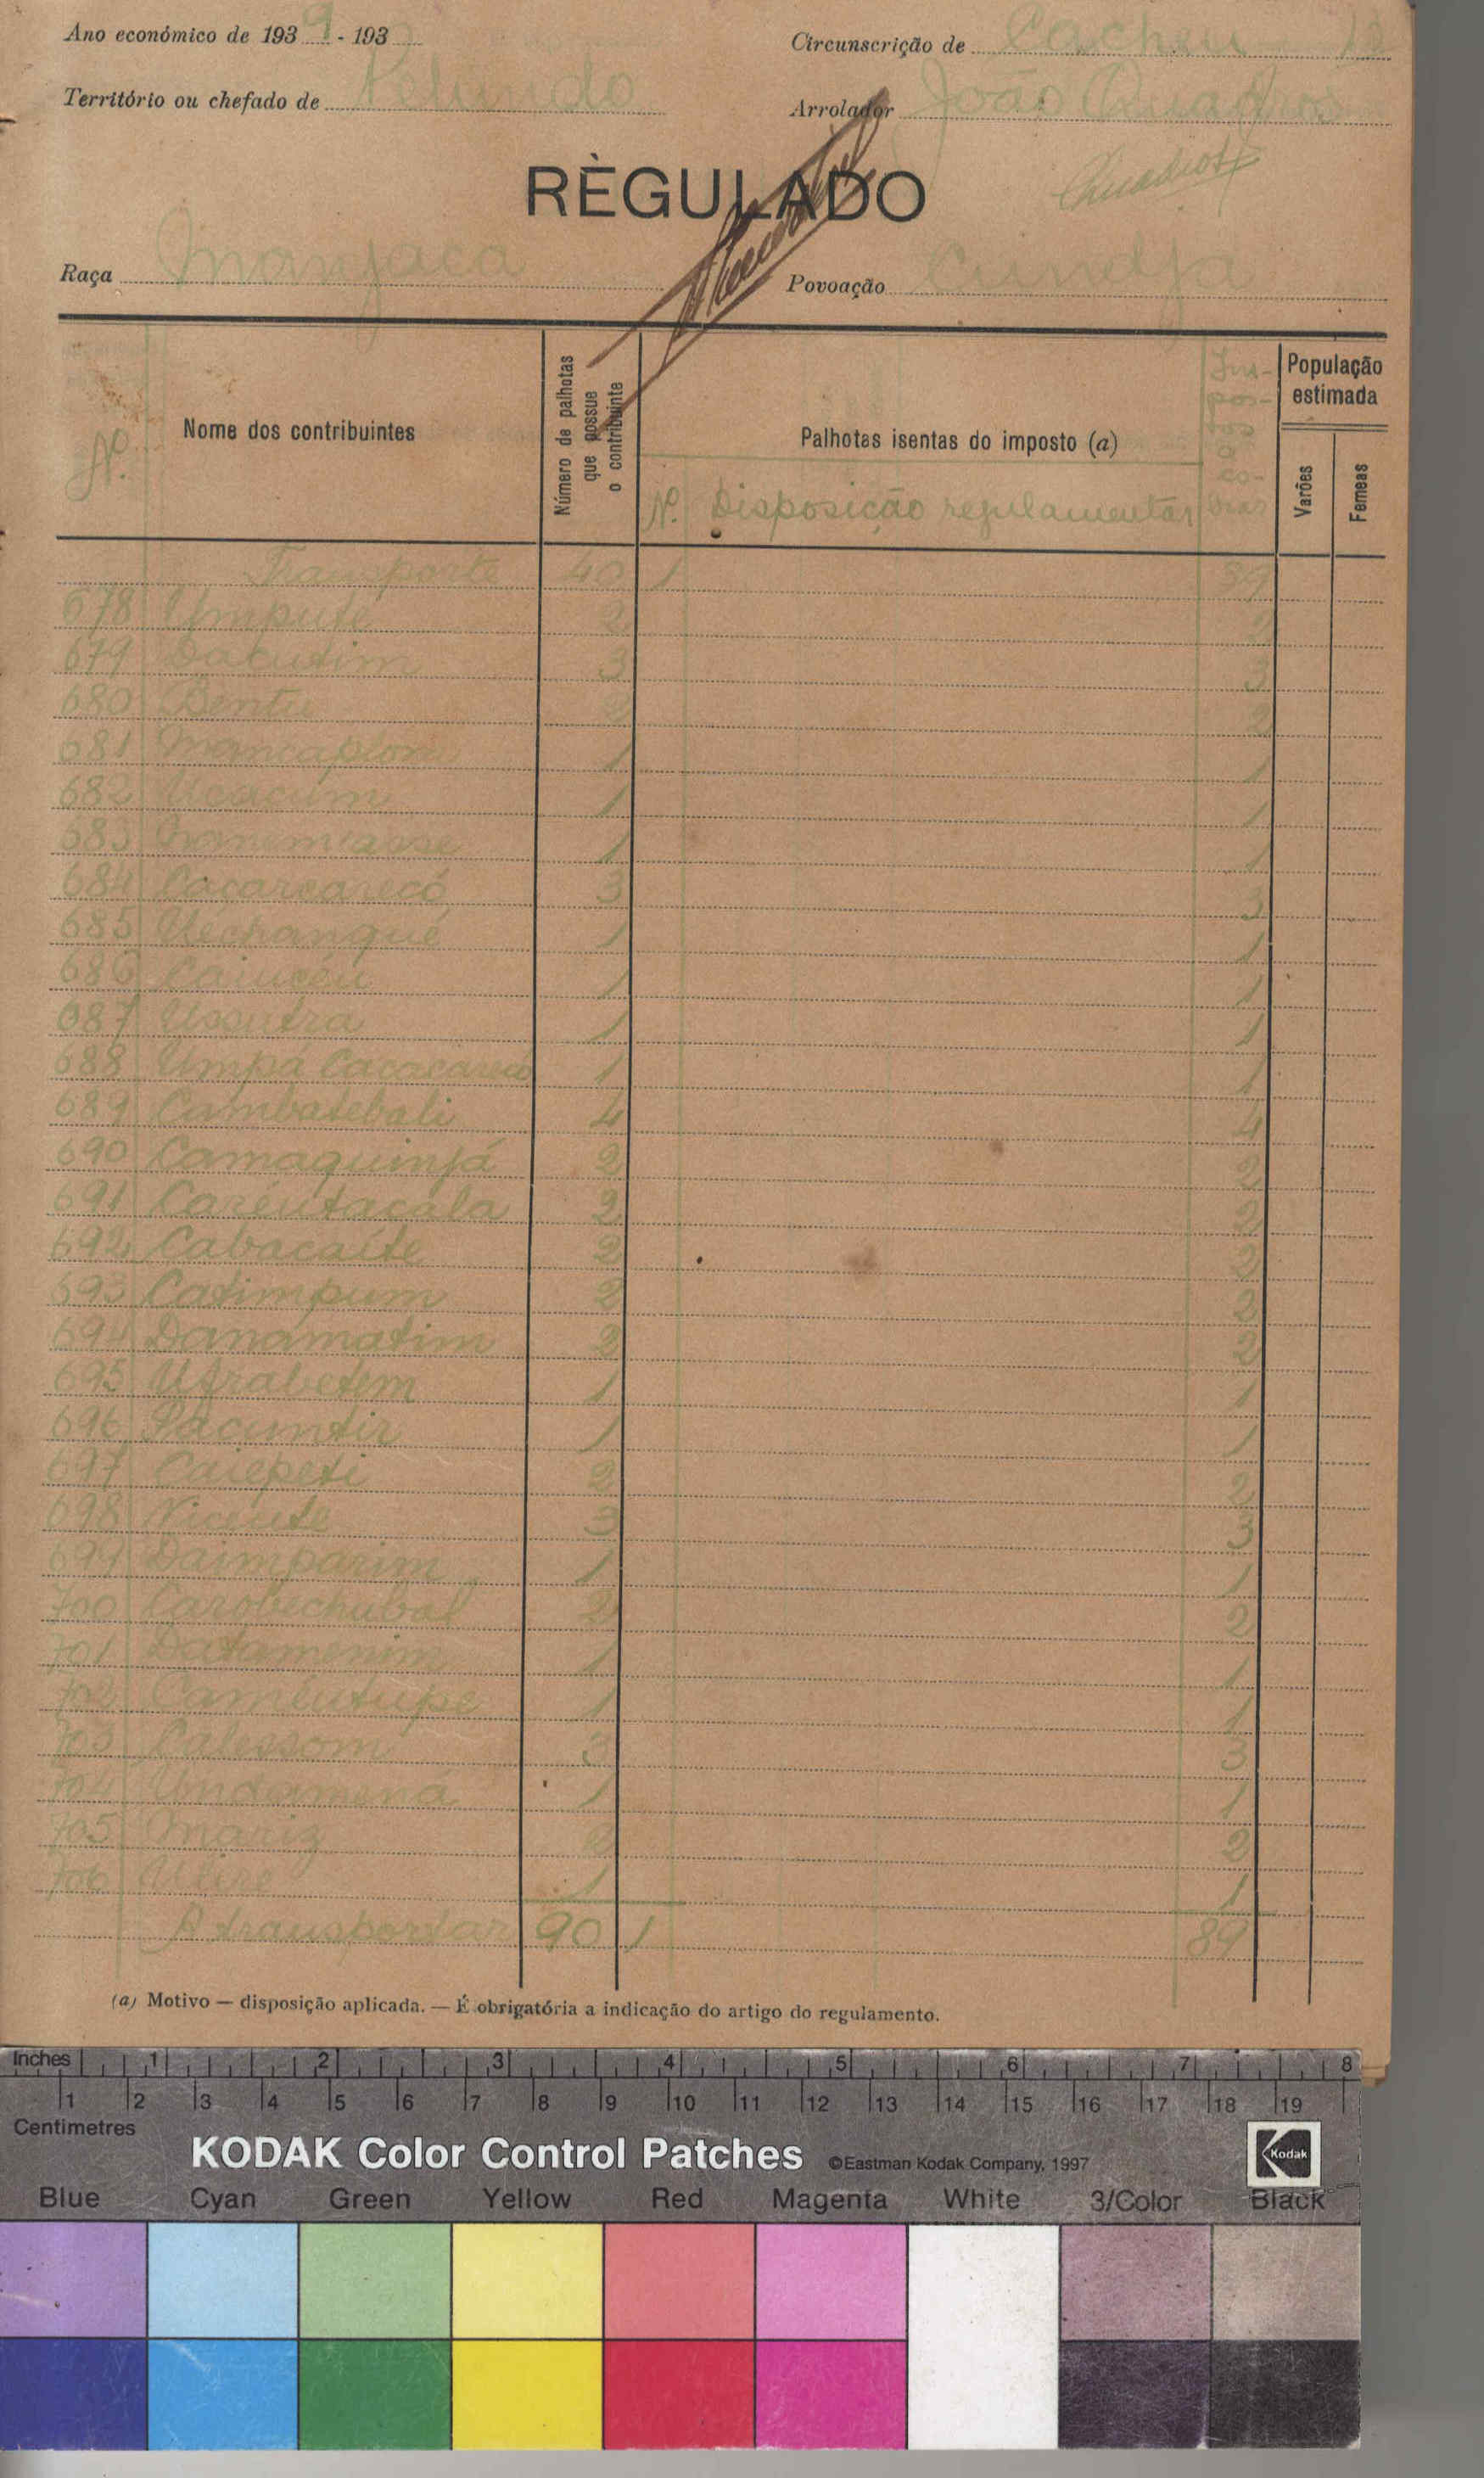 Ano económico de 1939 - 193
Circunscrição de Cacheu 12
Território ou chefado de
Arrolador João Quadros
RÈGULADO
Quadros
Raça Manjaca
Povoação
Nº.
Nome dos contribuintes
Número de palhotas que possue o contribuinte
Palhotas isentas do imposto (a)
Nº. Disposição regulamentar
Impostos a cobrar
População estimada
Varões
Femeas
Transporte 40 1 39
678 Umpute 2 2
679 Dacutim 3 3
680 Bentu 2 2
681 1 1
682 Ucacum 1 1
683 1 1
684 Caçarcarecó 3 3
685 Uéchangué 1 1
686 1 1
687 Ussutra 1 1
688 Umpá 1 1
689 Cambatebali 4 4
690 Camaquinjá 2 2
691 Caréutacala 2 2
692 Cabacaite 2 2
693 Catimpum 2 2
694 Danamatim 2 2
695 Ufrabetem 1 1
696 Pacuntir 1 1
697 Caiepeti 2 2
698 Vicente 3 3
699 Daimparim 1 1
700 Carobechubal 2 2
701 Datamenim 1 1
702 Caméutupe 1 1
703 Calessom 3 3
704 Undamená 1 1
705 Mariz 2 2
706 Ulire 1 1
A transportar 90 1 89
(a) Motivo — disposição aplicada. — É obrigatória a indicação do artigo do regulamento.
Inches 1 2 3 4 5 6 7 8
1 2 3 4 5 6 7 8 9 10 11 12 13 14 15 16 17 18 19
Centimetres
KODAK Color Control Patches ©Eastman Kodak Company, 1997 Kodak
Blue Cyan Green Yellow Red Magenta White 3/Color Black